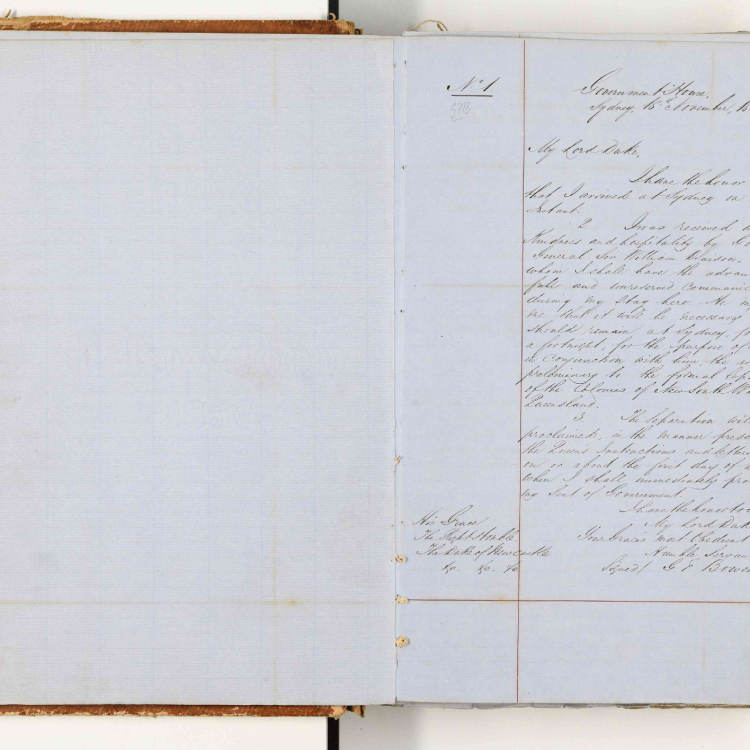 No 1.
Government House,
Sydney, 15th November, 18
My Lord Duke,
I have the honor
that I arrived at Sydney on
Instant.
2 I was received
Kindness and hospitality by
General Sir William Denison,
whom I shall have the advan
full and unreserved communic
during my stay here. He
me that it will be necessary
should remain at Sydney, fo
a fortnight, for the purpose of
in conjunction with him, the
preliminary to the formal Sep
of the Colonies of New South W
Queensland.
3 The Separation will
proclaimed, in the manner pres
the Queen's Instructions and Lette
on or about the first day of
when I shall immediately pro
my Seat of Government.
I have the honor to
My Lord Duke
Your Grace's most Obedient
Humble Serva
Signed/ G F Bowe
His Grace
The Right Honble
The Duke of Newcastle
&c. &c. &c